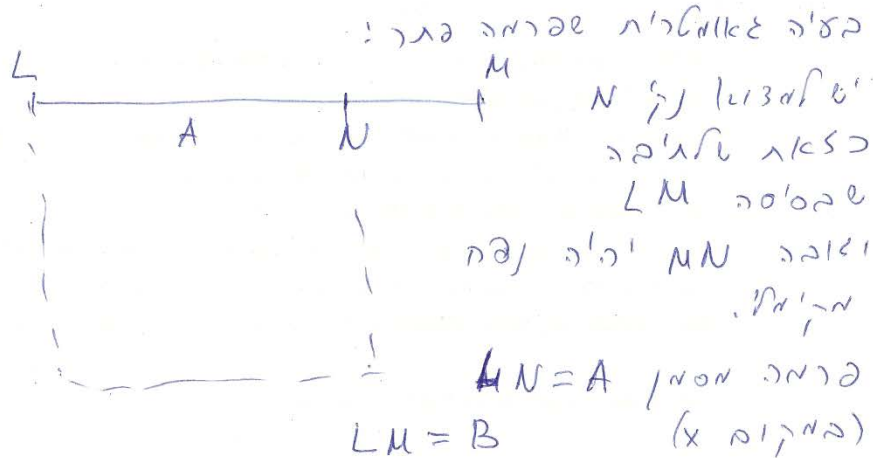 בעיה גאומטרית שפרמה פתר:
L M
יש למצוא נק' N
A N
כזאת שלתיבה
שבסיסה LM
וגובה MN יהיה נפח
מקימלי.
פרמה מסמן LN = A
(במקום x) LM = B